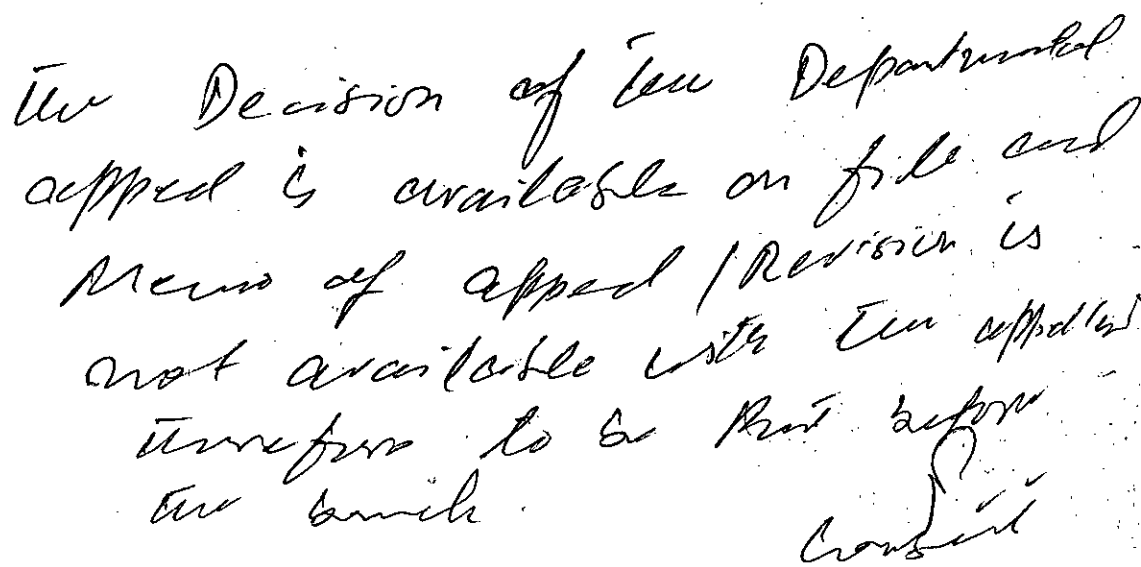 The Decision of the Departmental
appeal is available on file and
Memo of appeal / Revision is
not available with the appellant
therefore to be Put before
the bench.
Counsel